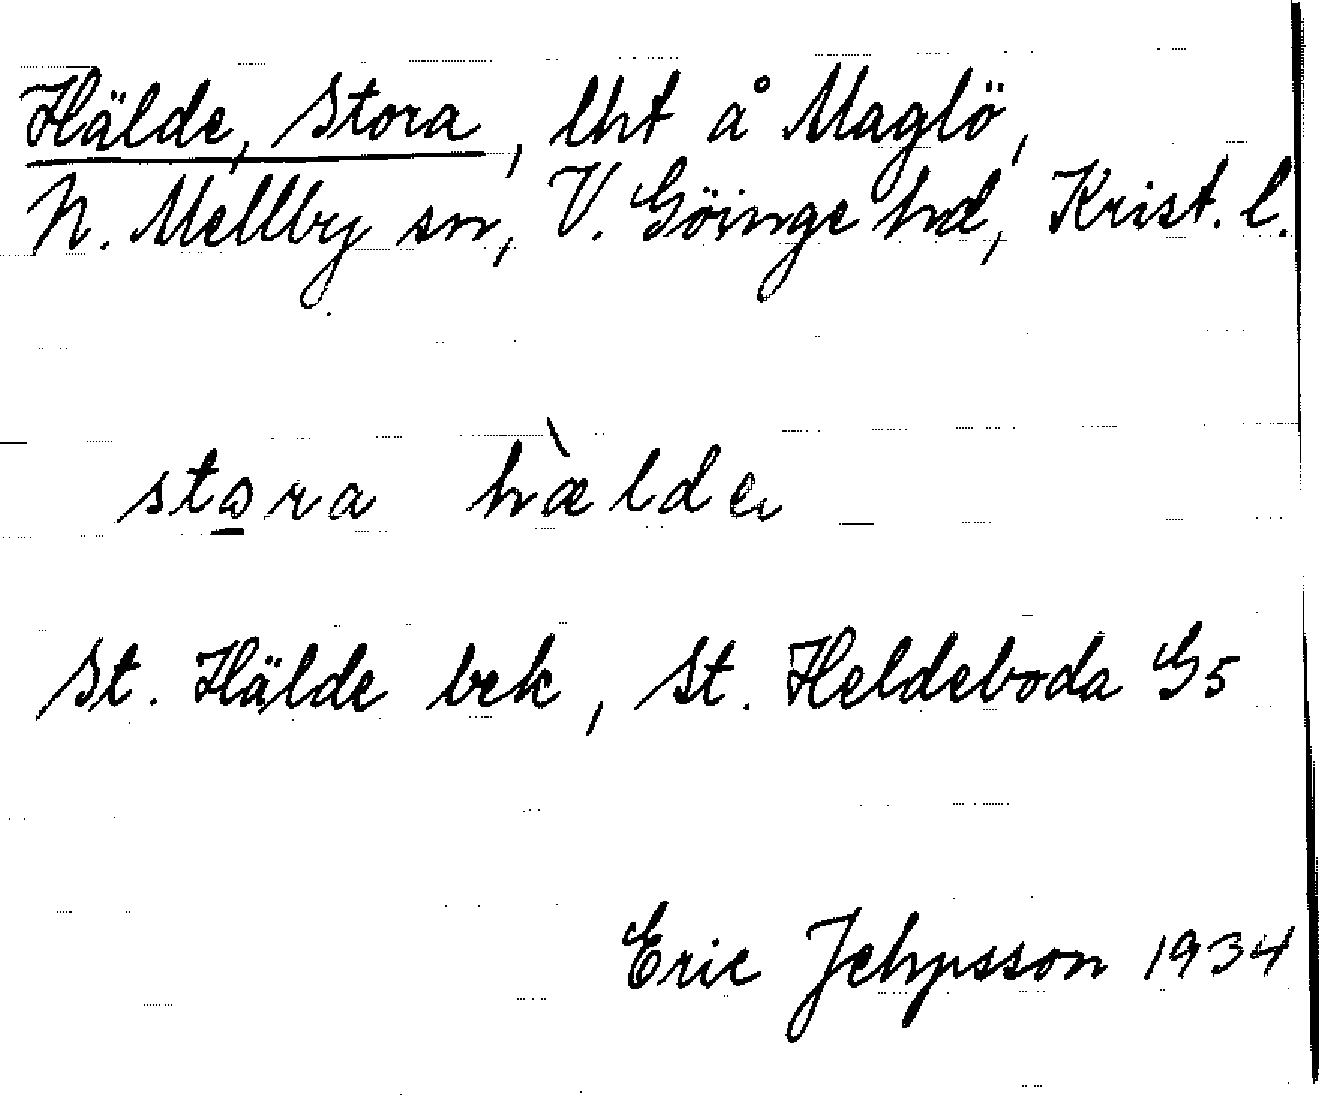 Hälde, Stora, lht å Maglö,
N. Mellby sn, V. Göinge hd, Krist. l.
sto̲ra hæ̀lde
St. Hälde bek, St. Heldeboda G5
Eric Jehpsson 1934